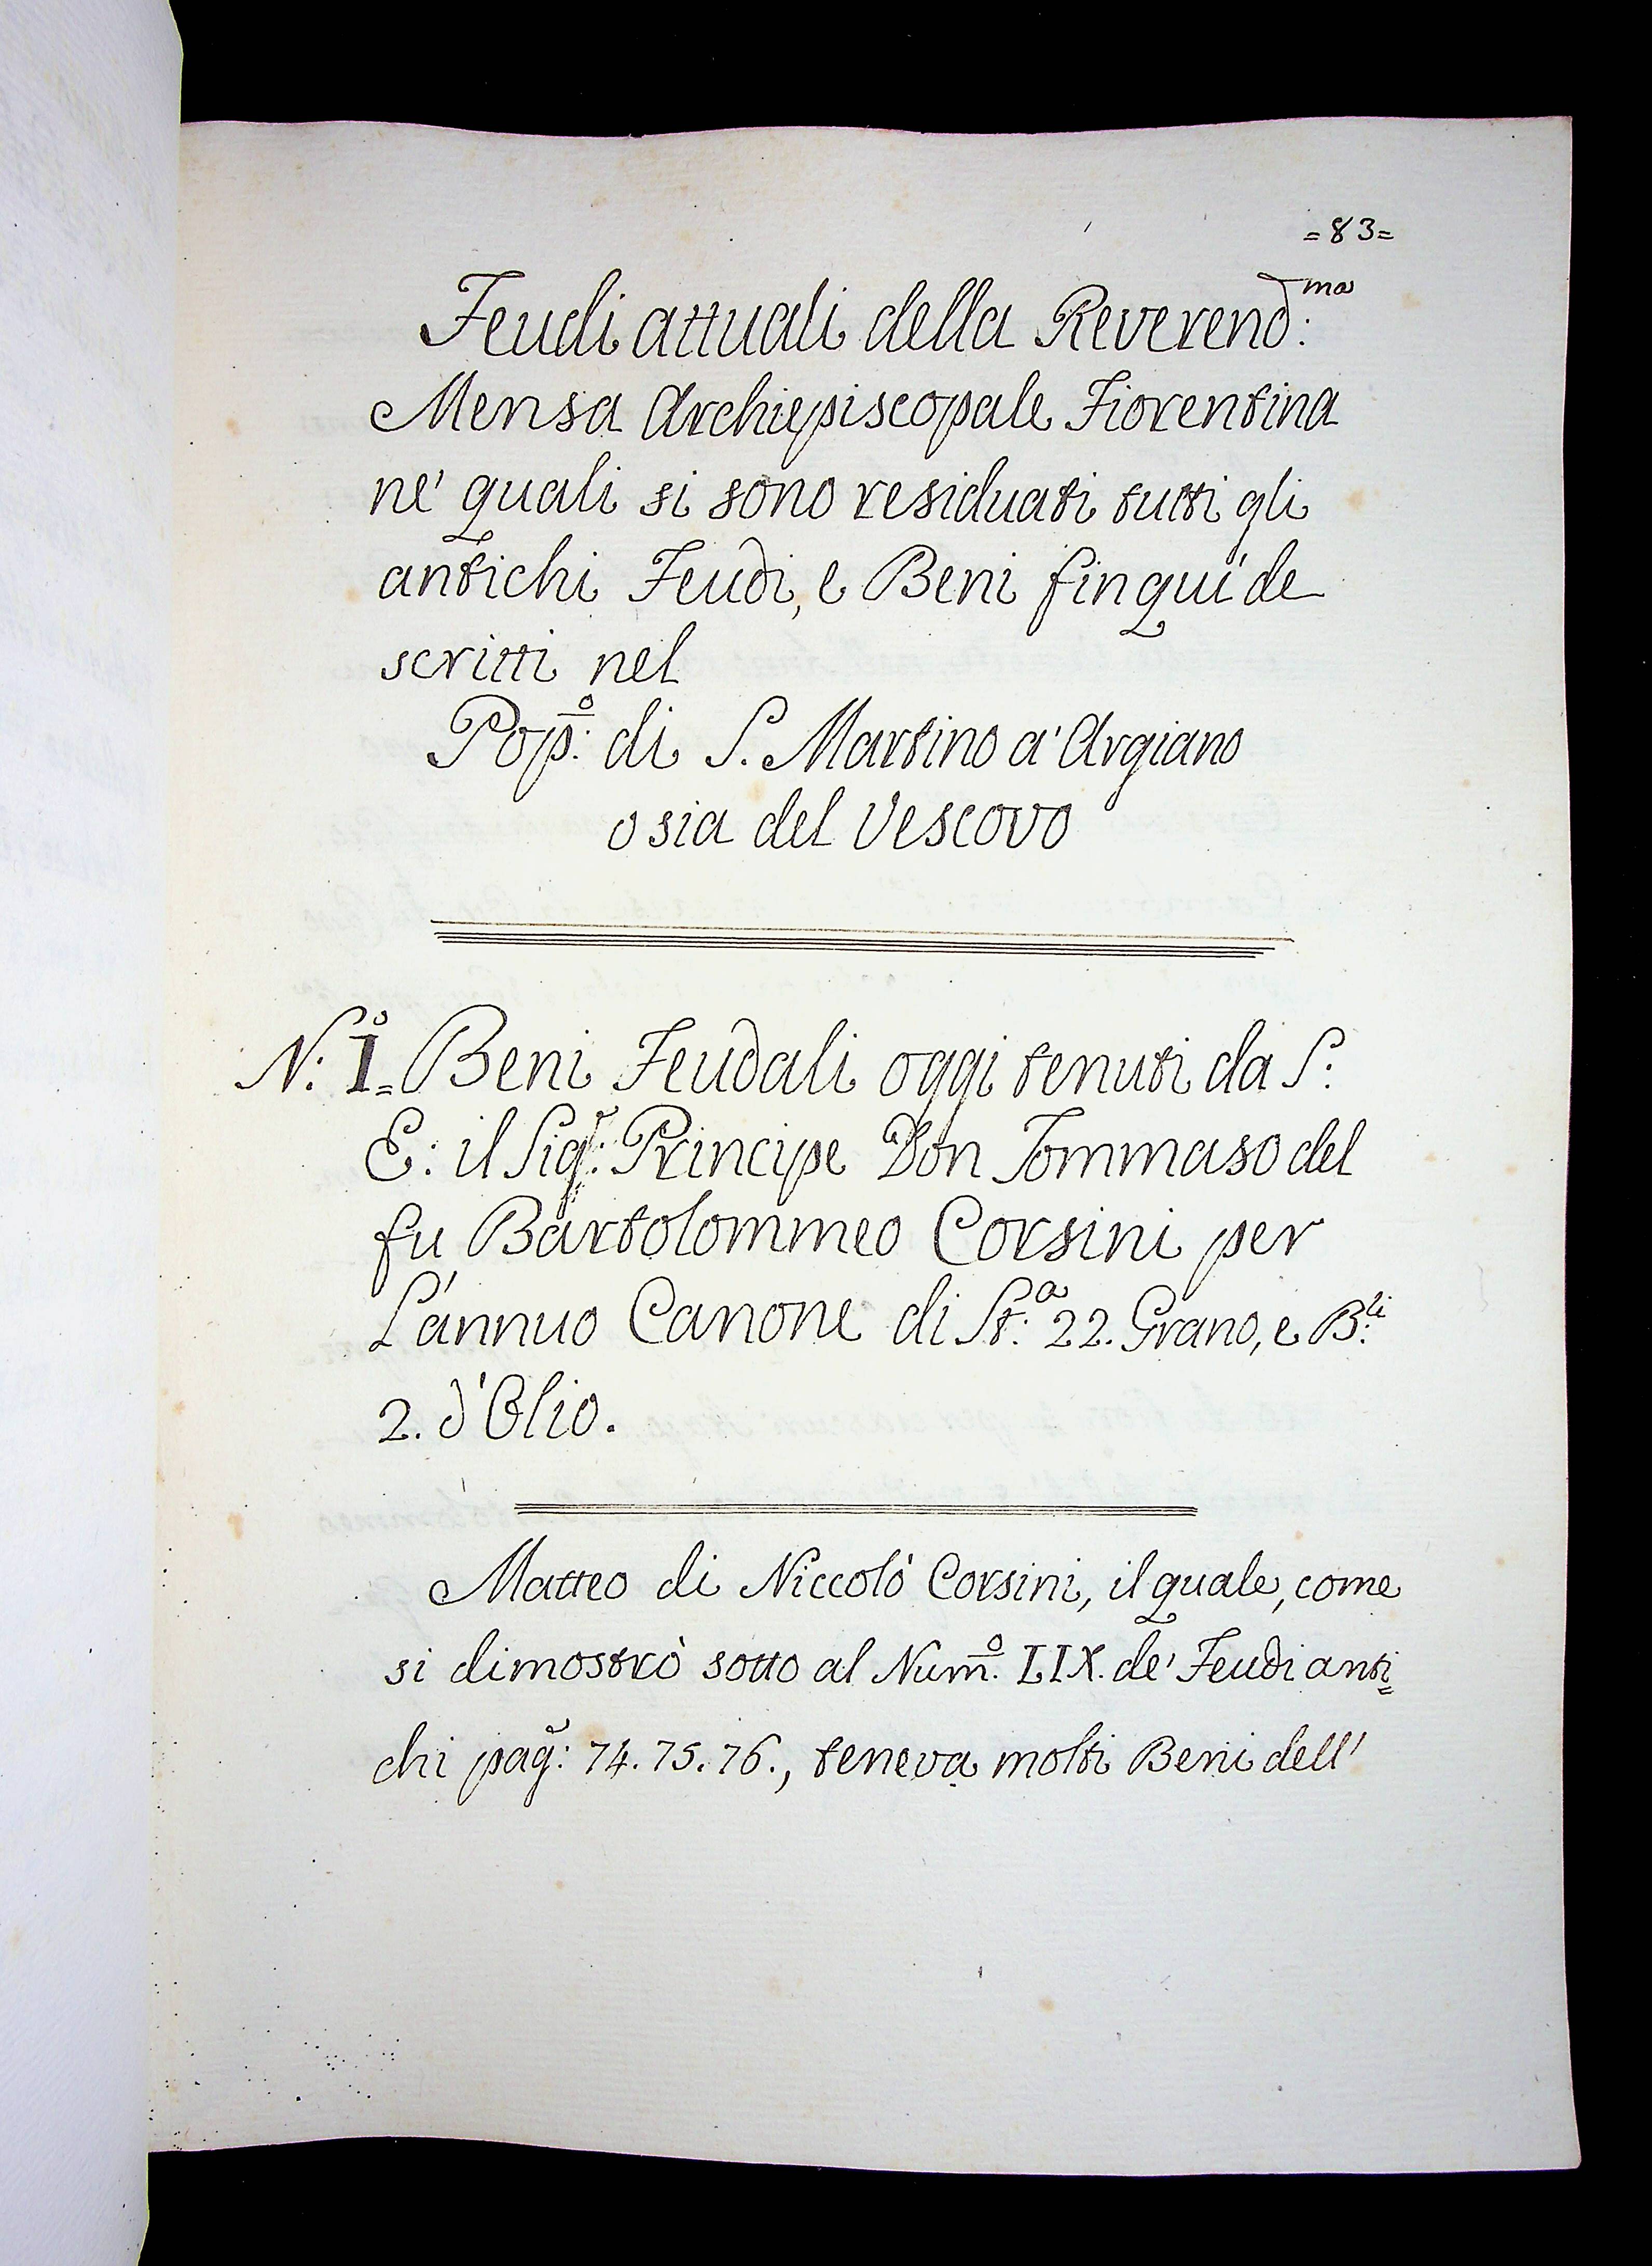 =83=
Feudi attuali della Reverend:ma
Mensa Archiepiscopale Fiorentina
ne' quali si sono residuati tutti gli
antichi Feudi, e Beni fin qui de
scritti nel
Pop:o di S. Martino a' Argiano
o sia del Vescovo
N: I.o= Beni Feudali oggi tenuti da S:
E: il Sig:r Principe Don Tommaso del
fu Bartolommeo Corsini per
L'annuo Canone di St:a 22. Grano, e B:li
2. d'Olio.
Matteo di Niccolò Corsini, il quale, come
si dimostrò sotto al Num.o LIX. de' Feudi anti=
chi pag: 74. 75. 76., teneva molti Beni dell'